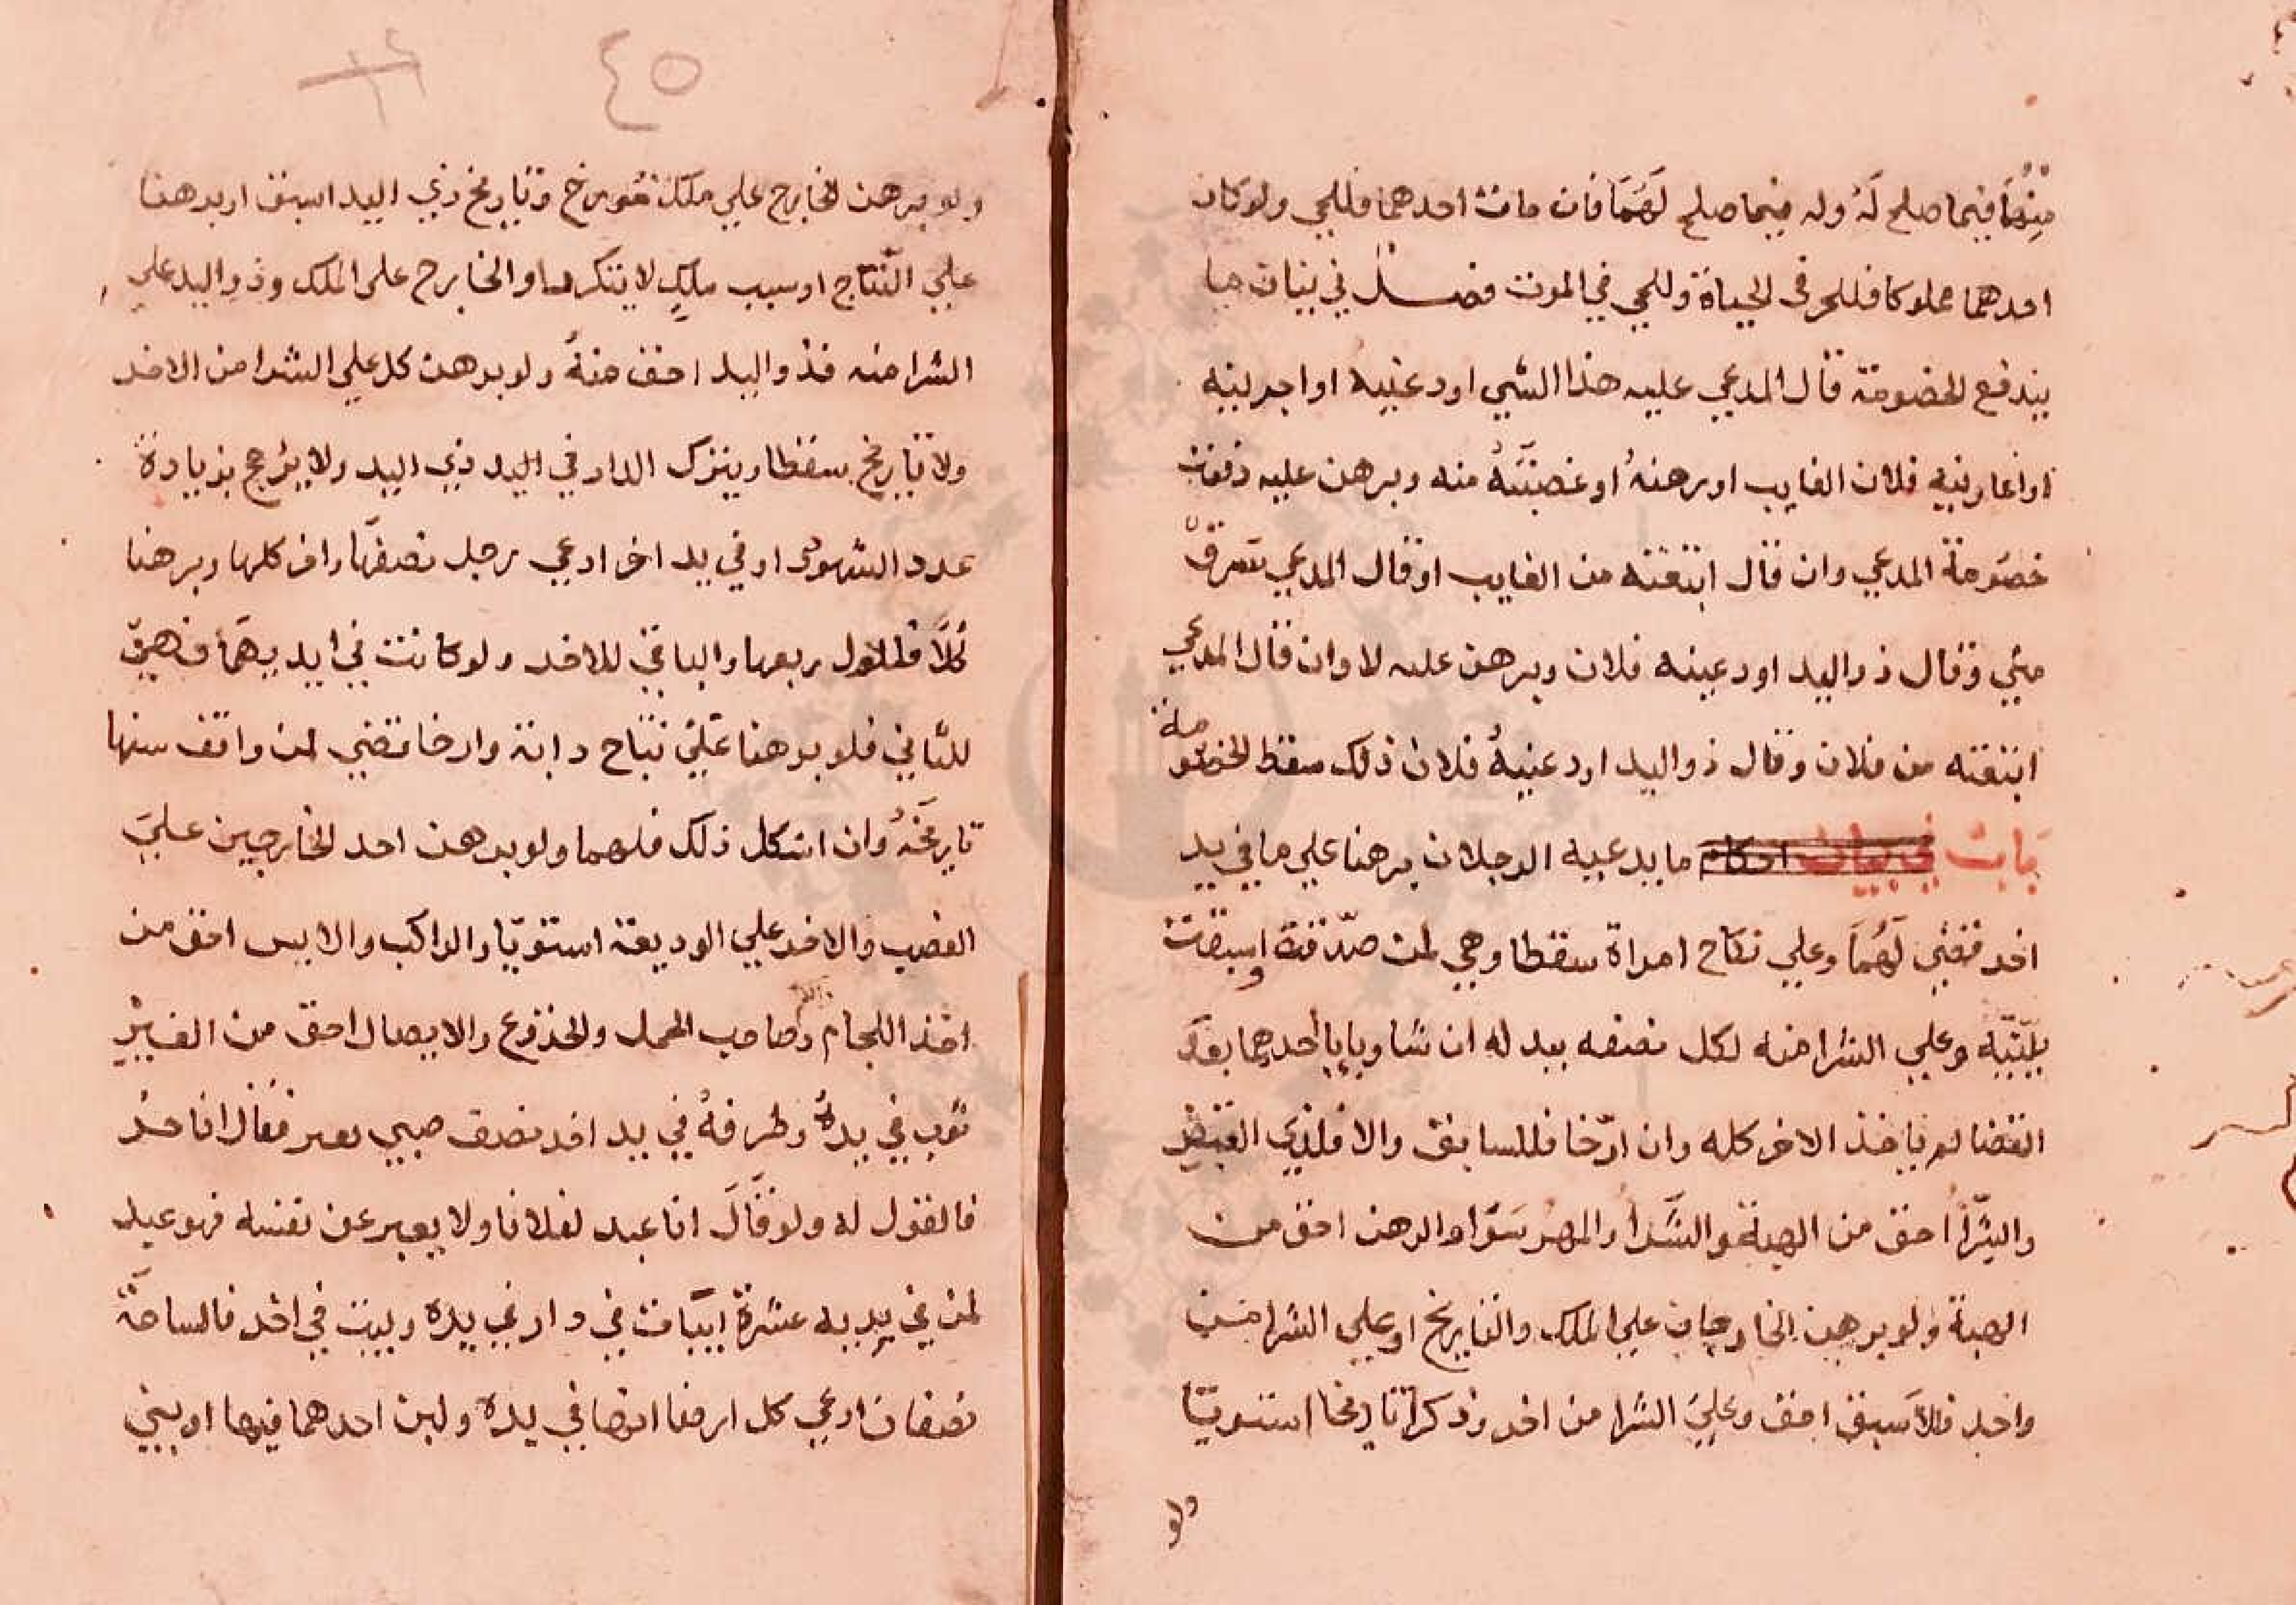 منهما فيما صلح له وله فيما صلح لهما فان مات احدهما فللحي ولو كان
احدهما مملوكا فللحر في الحياة وللحي في الموت فصل في بيان ما
يندفع الخصومة قال المدعي عليه هذا الشي اودعنيه او اجرنيه
او اعارنيه فلان الغايب او رهنه او غصبته منه وبرهن عليه دفعت
خصومة المدعي وان قال ابتعته من الغايب او قال المدعي سرق
مني وقال ذو اليد اودعينه فلان وبرهن عليه لا وان قال المدعي
ابتعته من فلان وقال ذو اليد اودعنيه فلان ذلك سقط الخصومة
باب في بيان احكام ما يدعيه الرجلان برهنا علي ما في يد
اخر قضي لهما وعلي نكاح امراة سقطا وهي لمن صدقته او سبقت
بينته وعلي الشرا منه لكل نصفه ببدله ان شا وبابا احدهما بعد
القضا لم ياخذ الاخر كله وان ارخا فللسابق والا فلذي القبض
والشرا احق من الهبة والشرا والمهر سوا والرهن احق من
الهبة ولو برهن الخارجان علي الملك والتاريخ او علي الشرا من
واحد فالاسبق احق وعلي الشرا من اخر وذكرا تاريخا استويا
ولو
٤٥
ولو برهن الخارج علي ملك مورخ وتاريخ ذي اليد اسبق او برهنا
علي النتاج او سبب ملك لا يتكرر او الخارج علي الملك وذو اليد علي
الشرا منه فذو اليد احق منه ولو برهن كل علي الشرا من الاخر
ولا تاريخ سقطا ويترك الدار في اليد ذي اليد ولا يرجح بزيادة
عدد الشهود او في يد اخر ادعي رجل نصفها واخر كلها وبرهنا
كلا فللاول ربعها والباقي للاخر ولو كانت في ايديهما فهي
للثاني فلو برهنا علي نتاج دابة وارخا قضي لمن وافق سنها
تاريخه وان اشكل ذلك فلهما ولو برهن احد الخارجين علي
الغصب والاخر علي الوديعة استويا والراكب والابس احق من
اخذ اللجام وصاحب الحمل والجذوع والايصال احق من الغير
ثوب في يده وطرفه في يد اخر نصف صبي يعبر فقال انا حر
فالقول له ولو قال انا عبد لفلان او لا يعبر عن نفسه فهو عبد
لمن في يديه عشرة ابيات في دار في يده وبيت في اخر فالساحة
نصفان ادعي كل ارضا انها في يده ولبن احدهما فيها او بني